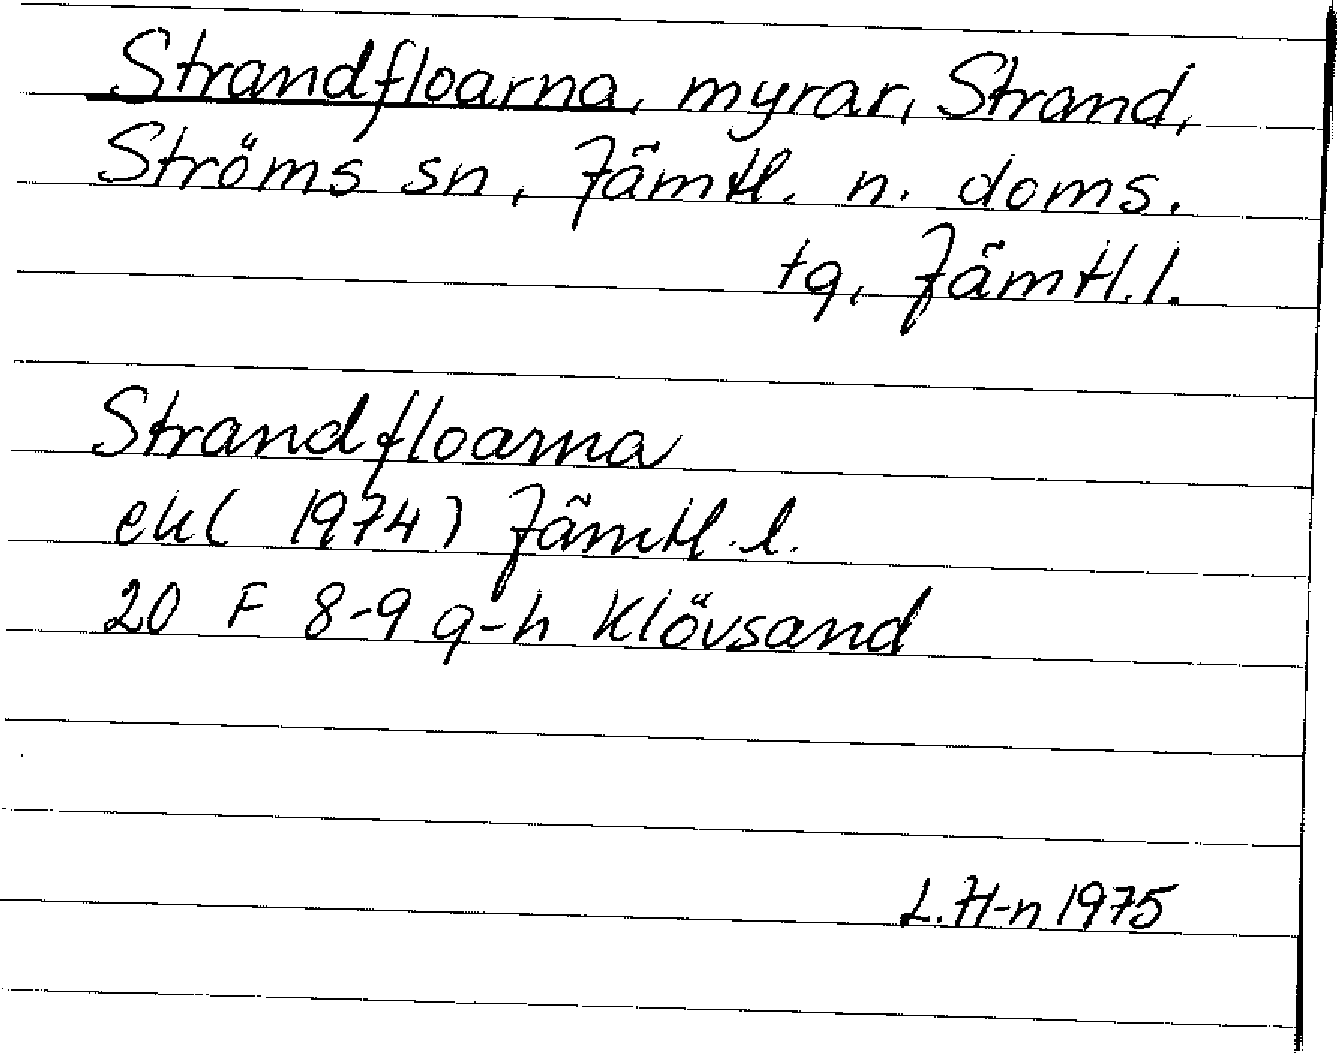 Strandfloarna, myrar, Strand,
Ströms sn, Jämtl. n. doms.
tg, Jämtl.l.
Strandfloarna
ek( 1974) Jämtl.l.
20 F 8-9 g-h Klövsand
L.H-n 1975